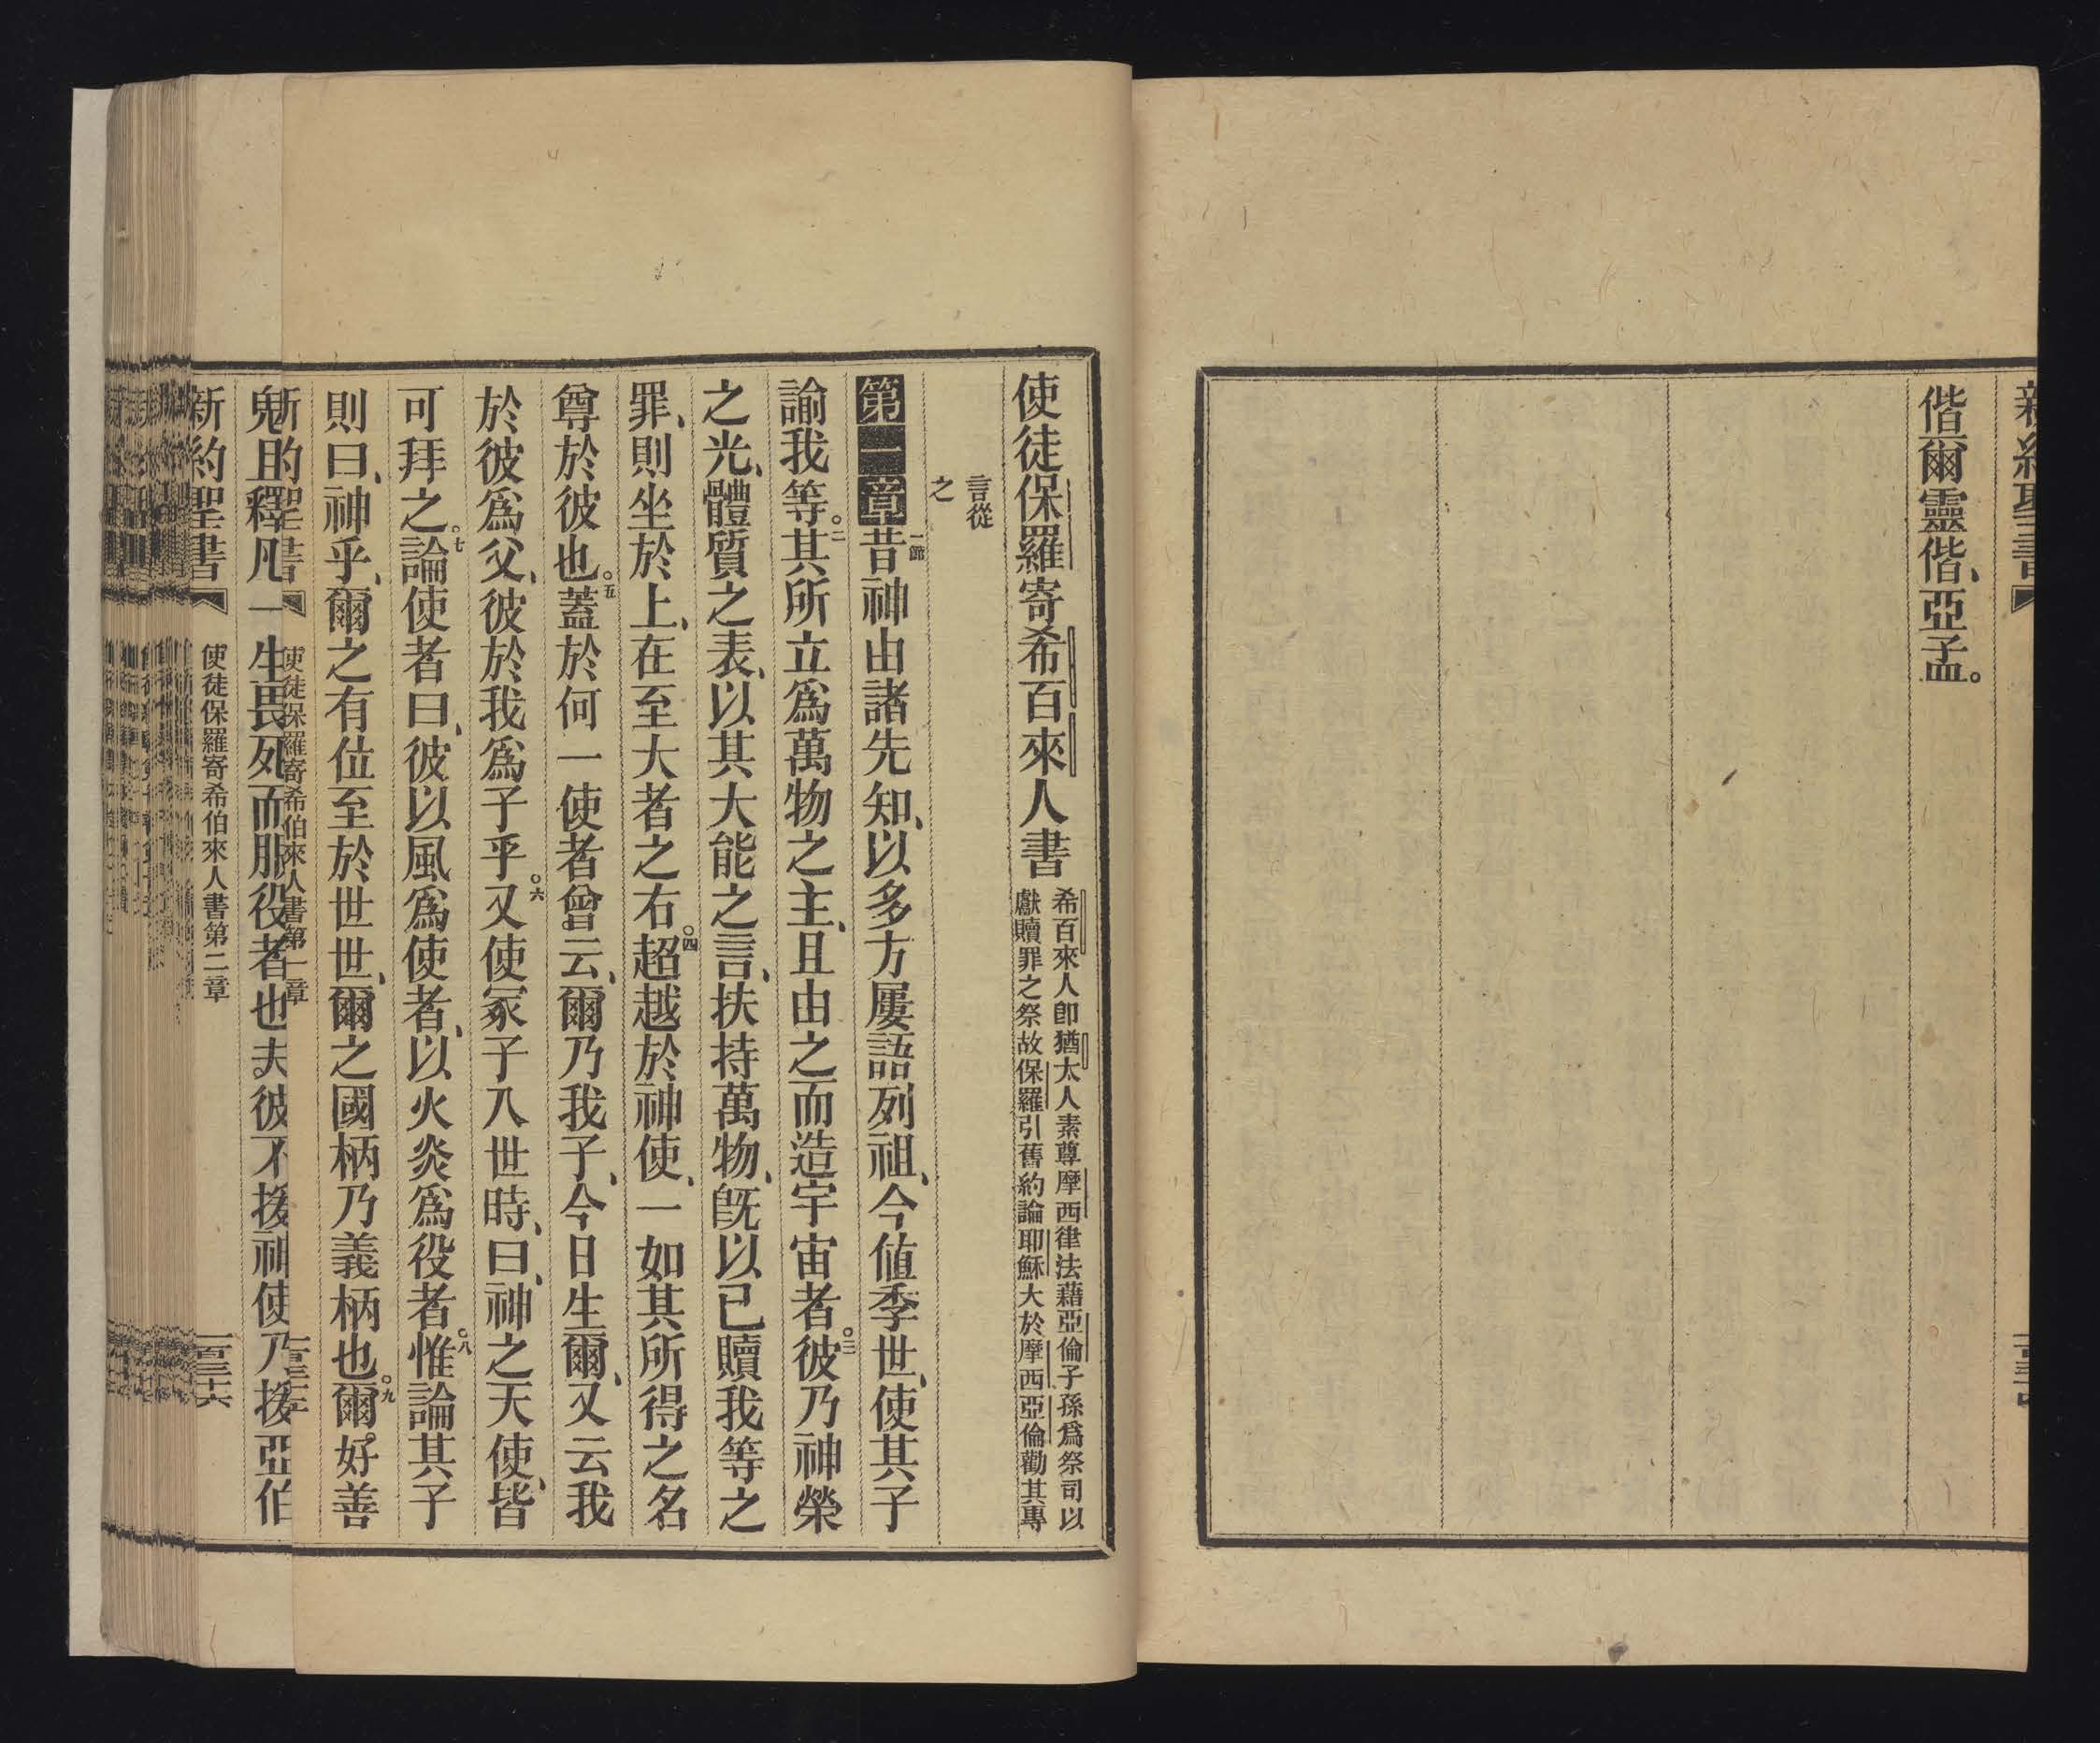 偕爾靈偕、亞孟。
使徒保羅寄希百來人書
希百來人卽猶太人素尊摩西律法藉亞倫子孫爲祭司以
獻贖罪之祭故保羅引舊約論耶穌大於摩西亞倫勸其專
言從
之
第一章一節昔神由諸先知、以多方屢語列祖、今値季世、使其子
諭我等。二其所立爲萬物之主、且由之而造宇宙者。三彼乃神榮
之光、體質之表、以其大能之言、扶持萬物、旣以己贖我等之
罪、則坐於上、在至大者之右。四超越於神使、一如其所得之名
尊於彼也。五蓋於何一使者曾云、爾乃我子、今日生爾、又云我
於彼爲父、彼於我爲子乎。六又使冢子入世時、曰、神之天使、皆
可拜之。七論使者曰、彼以風爲使者、以火炎爲役者。八惟論其子
則曰、神乎、爾之有位至於世世、爾之國柄乃義柄也。九爾好善
新約聖書 使徒保羅寄希伯來人書第一章
且釋凡一生畏死而服役者也夫彼不援神使乃援亞伯
新約聖書 使徒保羅寄希伯來人書第二章 一百三十六